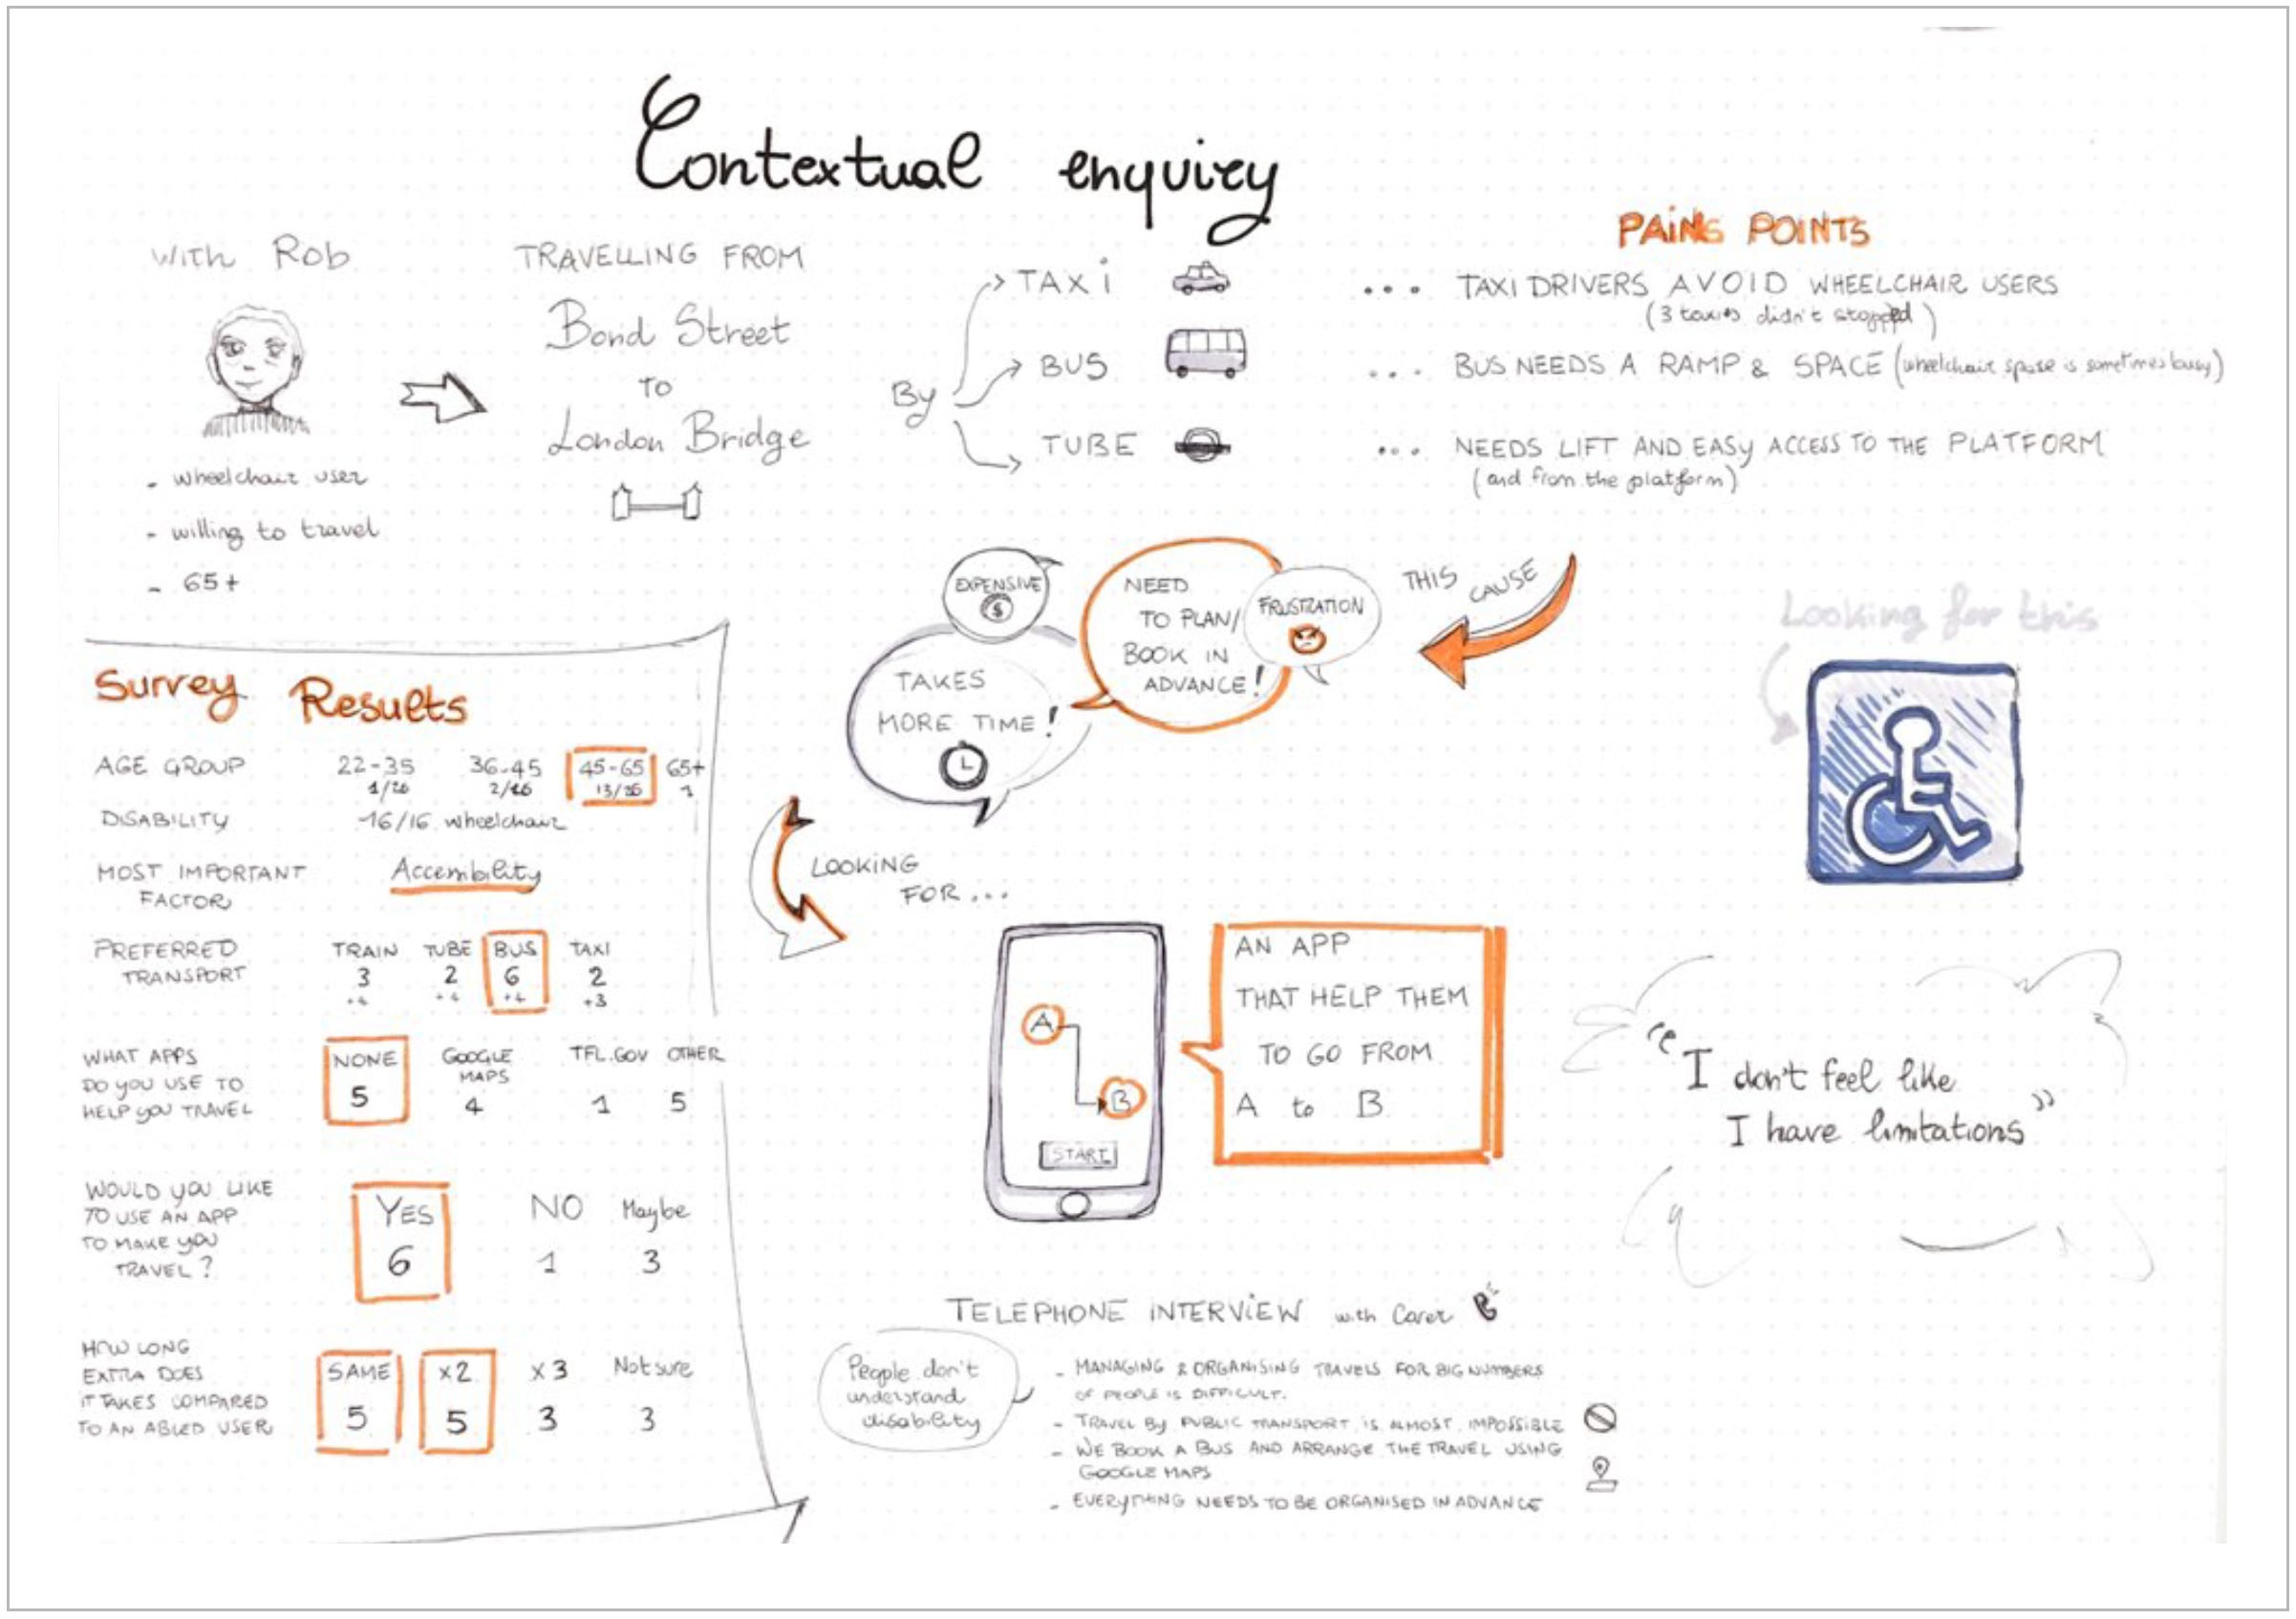 Contextual enquiry
With Rob
- wheelchair user
- willing to travel
- 65+
TRAVELLING FROM
Bond Street
TO
London Bridge
By
TAXI
BUS
TUBE
PAINS POINTS
... TAXI DRIVERS AVOID WHEELCHAIR USERS
(3 taxies didn't stopped)
... BUS NEEDS A RAMP & SPACE (wheelchair space is sometimes busy)
... NEEDS LIFT AND EASY ACCESS TO THE PLATFORM
(and from the platform)
THIS CAUSE
FRUSTRATION
NEED
TO PLAN/
BOOK IN
ADVANCE!
EXPENSIVE
$
TAKES
MORE TIME!
Looking for this
LOOKING
FOR...
A
B
START
AN APP
THAT HELP THEM
TO GO FROM
A to B
"I don't feel like
I have limitations"
Survey Results
AGE GROUP 22-35 36-45 45-65 65+
1/16 2/16 13/16 1
DISABILITY 16/16 wheelchair
MOST IMPORTANT Accessibility
FACTOR
PREFERRED TRAIN TUBE BUS TAXI
TRANSPORT 3 2 6 2
+4 +4 +4 +3
WHAT APPS NONE GOOGLE TFL.GOV OTHER
MAPS
DO YOU USE TO
HELP YOU TRAVEL 5 4 1 5
WOULD YOU LIKE
TO USE AN APP YES NO Maybe
TO MAKE YOU
TRAVEL? 6 1 3
HOW LONG
EXTRA DOES SAME x2 x3 Not sure
IT TAKES COMPARED
TO AN ABLED USER 5 5 3 3
TELEPHONE INTERVIEW with Carer
People don't
understand
disability
- MANAGING & ORGANISING TRAVELS FOR BIG NUMBERS
OF PEOPLE IS DIFFICULT.
- TRAVEL BY PUBLIC TRANSPORT IS ALMOST IMPOSSIBLE
- WE BOOK A BUS AND ARRANGE THE TRAVEL USING
GOOGLE MAPS
- EVERYTHING NEEDS TO BE ORGANISED IN ADVANCE